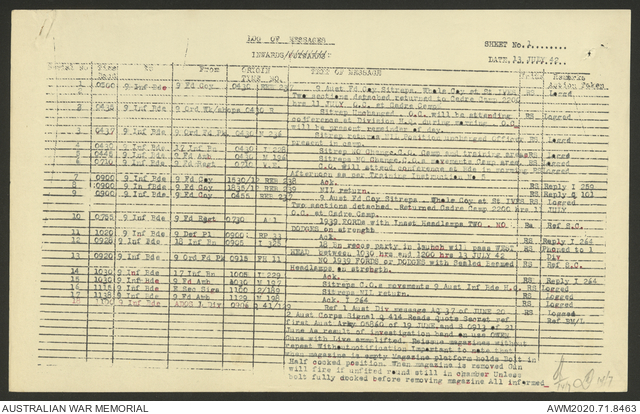 LOG OF MESSAGES
INWARDS/OUTWARDS:
SHEET No.
DATE. 13 JULY 42
Serial No Time Date TO From ORIGIN TIME NO. TEXT OF MESSAGE Remarks Action Taken
1 0500 9 Inf Bde 9 Fd Coy 0430 237 9 Aust Fd Coy Sitreps. Whole Coy at St IVES RS Logged
Two sections detached returned to Cadre Camp 2200
hrs 11 JULY O.C. at Cadre Camp.
2 0436 9 Inf Bde 9 Ord 0430 Sitrep Unchanged O.C. will be attending RS Logged
conference at Division H.Q. during morning. O.C.
will be present remainder of day.
3 0437 9 Inf Bde 9 Ord Fd Pk 0430 Sitrep returns
present in camp.
4 0430 9 Inf Bde 17 Inf Bn 0430 Sitrep NO Change. C.O. Camp and training area RS Logged
5 0445 9 Inf Bde 9 Fd Amb 0430 Sitrep NO Change. C.O.s movements Camp area RS Logged
6 0710 9 Inf Bde 9 Fd Regt C.O. Will attend conference at Bde to morning RS Logged
Afternoon as per Training Instruction No
7 0900 9 Inf Bde 9 Fd Coy 1830/12 WER 238 Ack. RS Reply I 259
8 0900 9 Inf Bde 9 Fd Coy 1835/12 WER 239 NIL return. RS Reply Q 101
9 0900 9 Inf Bde 9 Fd Coy 0455 WER 237 9 Aust Fd Coy Sitreps. Whole Coy at St IVES RS Logged
Two sections detached Returned Cadre Camp 2200 hrs 11 JULY
O.C. at Cadre Camp.
10 0755 9 Inf Bde 9 Fd Regt 0730 A 1 1939 FORDS with Inset Headlamps TWO. NO. Ref S.C.
DODGES on strength
11 1020 9 Inf Bde 9 Def Pl 0900 Ack. RS Reply I 264
12 0928 9 Inf Bde 18 Inf Bn 0905 I 325 18 Bn recce party in launch will pass WEST RS Phoned to 1
HEAD between 1030 hrs and 1200 hrs 13 JULY 42 Div
13 0920 9 Inf Bde 9 Ord Fd Pk 0915 FH 11 NO 1939 FORDS or DODGES with Sealed Beamed RS Ref S.C.
Headlamps on strength.
14 1030 9 Inf Bde 17 Inf Bn 1005 I 229 Ack. RS Reply I 264
15 1030 9 Inf Bde 9 Fd Amb 1030 M 197 Sitreps C.O.s movements 9 Aust Inf Bde H.Q. RS Logged
16 1115 9 Inf Bde K Sec Sigs 1100 2/189 Sitreps NIL return. RS Logged
17 1138 9 Inf Bde 9 Fd Amb 1129 M 198 Ack. I 264 RS Logged
18 1100 9 Inf Bde ADOS 1 Div 0906 Ref 1 Aust Div message AQ 37 of JUNE 20 RS Logged
2 Aust Corps Signal Q 414 Reads Quote Secret ref Ref BM/L
first Aust Army OA860 of 19 JUNE and S 0913 of 21
June as result of investigation band on use OWEN
Guns with Live ammunition. Reissue magazines without
repeat Without notification Important to note that
when magazine is empty Magazine platform holds Bolt in
Half cocked position. When magazine is removed Gun
will fire if unfired round still in chamber Unless
bolt fully cocked before removing magazine All informed
AUSTRALIAN WAR MEMORIAL
AWM2020.71.8463